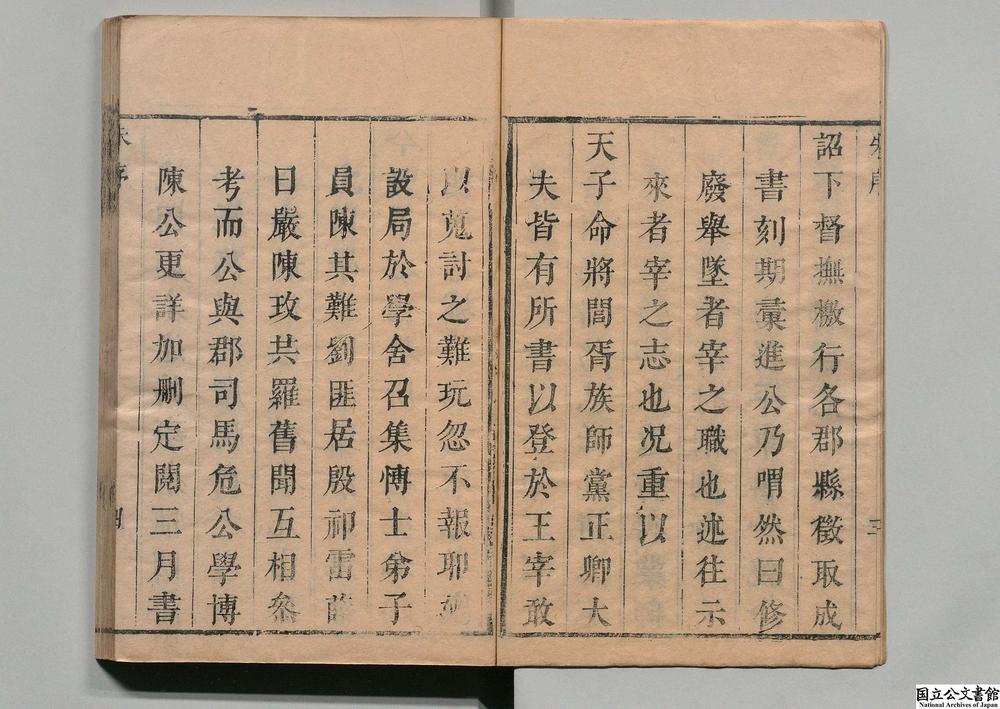 詔下督撫檄行各郡縣徵取成
書刻期彙進公乃喟然曰修
廢舉墜者宰之職也述往示
來者宰之志也况重以
天子命將閭胥族師黨正卿大
夫皆有所書以登於王宰敢
以蒐討之難玩忽不報耶
設局於學舍召集愽士弟子
員陳其難劉匪居殷祁雷
日嚴陳玫共羅舊聞互相叅
考而公與郡司馬危公學博
陳公更詳加刪定閱三月書
国立公文書館
National Archives of Japan